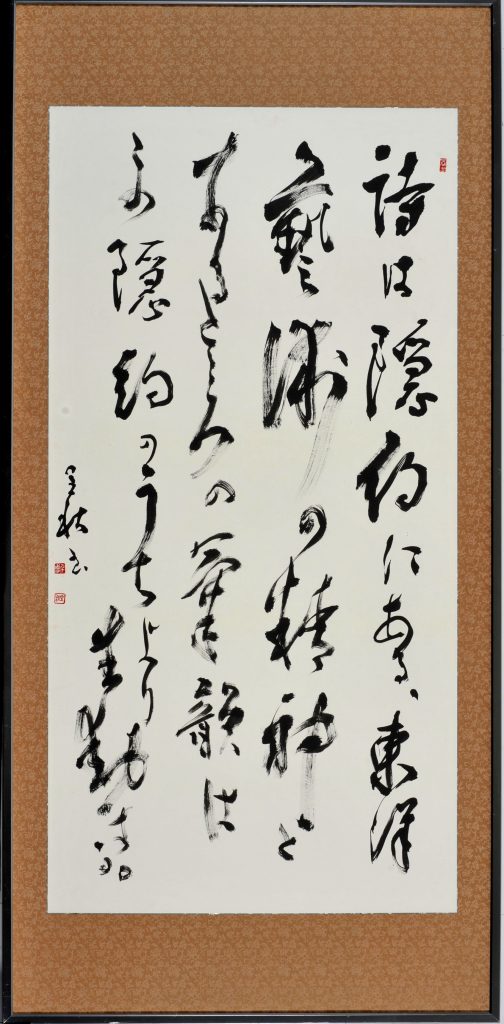 詩は隠約にある、東洋
藝術の精神と
するところの氣韻は
この隠約のうちより生動する
書